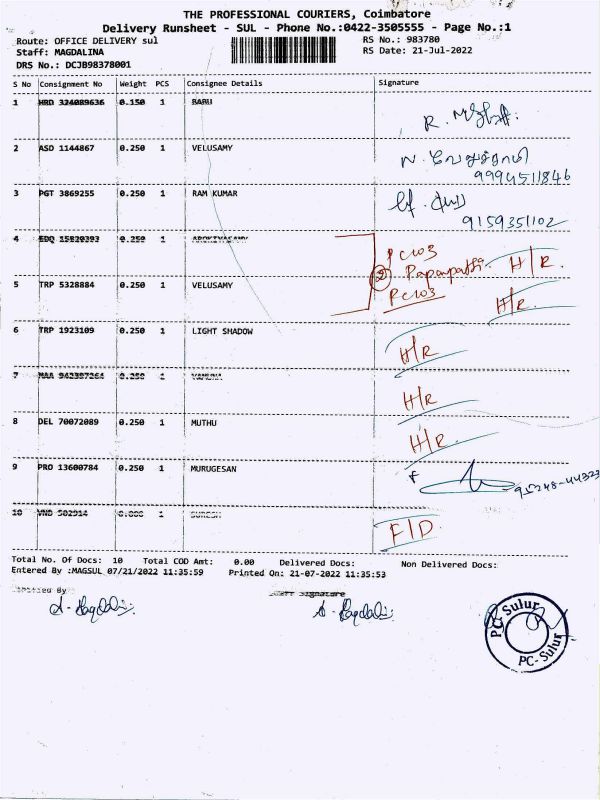 THE PROFESSIONAL COURIERS, Coimbatore
Delivery Runsheet - SUL - Phone No.:0422-3505555 - Page No.:1
Route: OFFICE DELIVERY sul RS No.: 983780
Staff: MAGDALINA RS Date: 21-Jul-2022
DRS No.: DCJB98378001
S No Consignment No Weight PCS Consignee Details Signature
1 HRD 324089636 0.150 1 BABU
R.
2 ASD 1144867 0.250 1 VELUSAMY
9994511846
3 PGT 3869255 0.250 1 RAM KUMAR
9159351102
4 EDQ 15820393 0.250 1 AROKIYASAMY
PC103
② Papanpatti. H/R.
5 TRP 5328884 0.250 1 VELUSAMY PC103 H/R.
6 TRP 1923109 0.250 1 LIGHT SHADOW H/R
7 MAA 942387264 0.250 1 H/R
8 DEL 70072089 0.250 1 MUTHU H/R.
9 PRO 13600784 0.250 1 MURUGESAN
10 VND 502914 1 SURESH F/D.
Total No. Of Docs: 10 Total COD Amt: 0.00 Delivered Docs: Non Delivered Docs:
Entered By :MAGSUL 07/21/2022 11:35:59 Printed On: 21-07-2022 11:35:53
Verified By Staff Signature
PC-Sulur
PC-Sulur